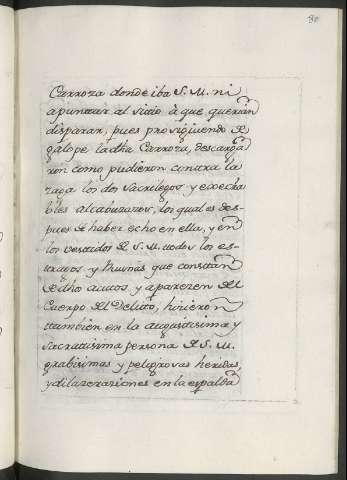 80
Carroza donde iba S. M. ni
apuntar al sitio à que querian
disparar, pues prosiguiendo de
galope la dha Carroza, descarga
ron como pudieron contra la
zaga los dos sacrilegos y execra
bles alcabuzazos, los quales des-
pues de haber echo en ella, y en
los vestidos de S. M. todos los es-
tragos y Ruinas que constan
de dho autos, y aparezen del
Cuerpo del Delitto, hiziero n
tambien en la augustissima y
Sacratissima persona de S. M.
grabisimas y peligrosas heridas,
y dilazeraziones en la espalda